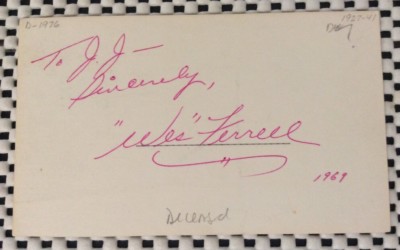 D-1976
1927-41
To J.J—
Sincerely,
"Wes" Ferrell
1969
Deceased